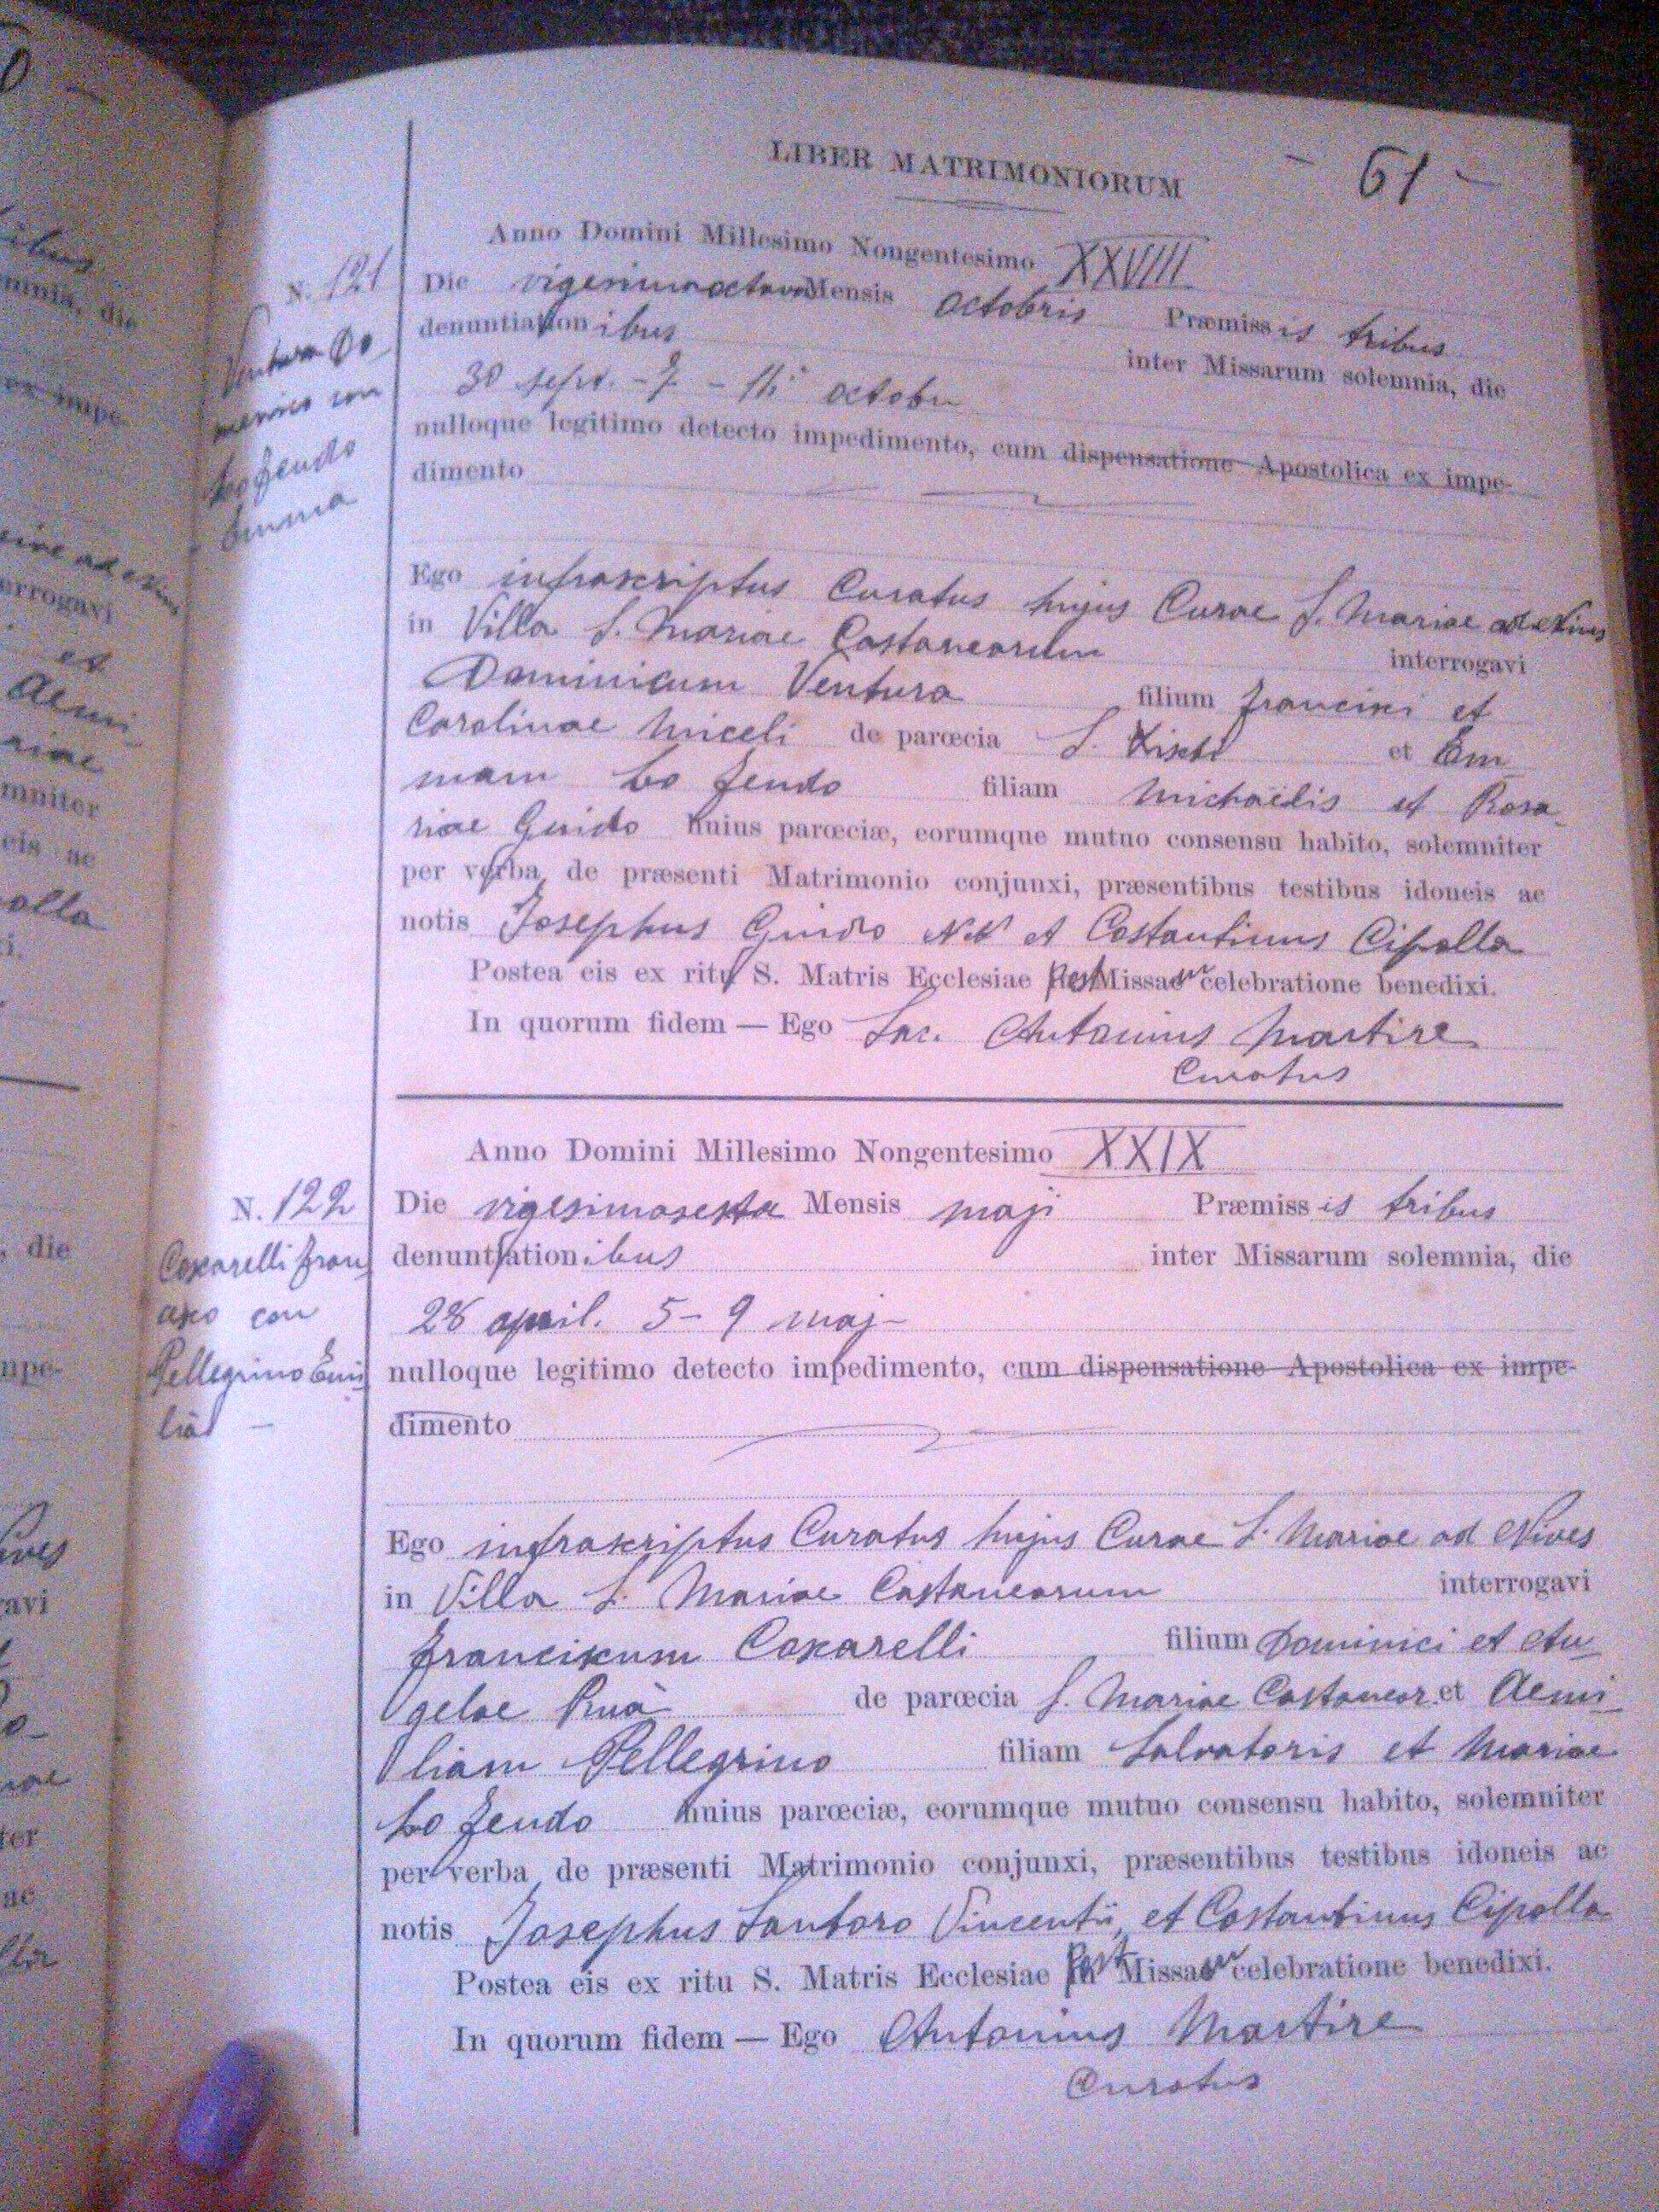 LIBER MATRIMONIORUM
- 61 -
Anno Domini Millesimo Nongentesimo XXVIII
N. 121
Die vigesimaoctava Mensis octobris Præmissis tribus
denuntiationibus inter Missarum solemnia, die
Ventura Do
menico con
Lo Feudo
Emma
30 sept. - 7 - 14 octobr
nulloque legitimo detecto impedimento, cum dispensatione Apostolica ex impe-
dimento
Ego infrascriptus Curatus hujus Curae S. Mariae ad Nives
in Villa S. Mariae Castanearum interrogavi
Dominicum Ventura filium Francisci et
Carolinae Miceli de parœcia S. et Em
mam Lo Feudo filiam Michaëlis et Rosa
riae Guido huius parœciæ, eorumque mutuo consensu habito, solemniter
per verba de præsenti Matrimonio conjunxi, præsentibus testibus idoneis ac
notis Josephus Guido NN et Costantinus Cipolla
Postea eis ex ritu S. Matris Ecclesiae post Missae celebratione benedixi.
In quorum fidem — Ego Sac. Antonius Martire
Curatus
Anno Domini Millesimo Nongentesimo XXIX
N. 122
Die vigesimasexta Mensis maji Præmissis tribus
denuntiationibus inter Missarum solemnia, die
Coscarelli Fran
cesco con
Pellegrino Emi
lia -
28 april. 5 - 9 maj -
nulloque legitimo detecto impedimento, cum dispensatione Apostolica ex impe-
dimento
Ego infrascriptus Curatus hujus Curae S. Mariae ad Nives
in Villa S. Mariae Castanearum interrogavi
Franciscum Coscarelli filium Dominici et An
gelae Ruà de parœcia S. Mariae Castanear. et Aemi
liam Pellegrino filiam Salvatoris et Mariae
Lo Feudo huius parœciæ, eorumque mutuo consensu habito, solemniter
per verba de præsenti Matrimonio conjunxi, præsentibus testibus idoneis ac
notis Josephus Santoro Vincentii et Costantinus Cipolla
Postea eis ex ritu S. Matris Ecclesiae post Missae celebratione benedixi.
In quorum fidem — Ego Antonius Martire
Curatus